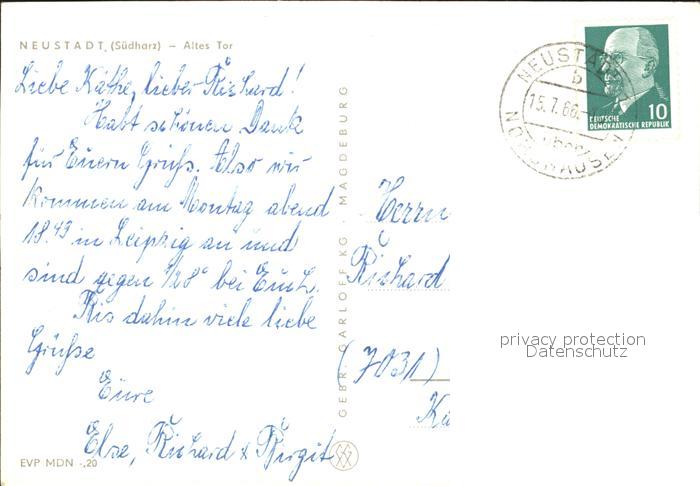 NEUSTADT (Südharz) – Altes Tor
Liebe Käthe, lieber Richard!
Habt schönen Dank
für Euern Gruß. Also wir
kommen am Montag abend
18.43 in Leipzig an und
sind gegen 1/28° bei Euch.
Bis dahin viele liebe
Grüße
Eure
Else, Richard & Birgit
EVP MDN -,20
GEBR. GARLOFF KG · MAGDEBURG
NEUSTADT
b
15.7.66
NORDHAUSEN
10
DEUTSCHE
DEMOKRATISCHE REPUBLIK
Herrn
Richard
(7031)
privacy protection
Datenschutz